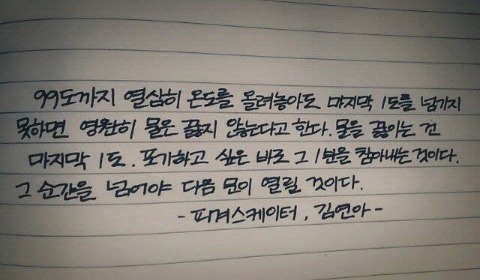 99도까지 열심히 온도를 올려놓아도 마지막 1도를 넘기지
못하면 영원히 물은 끓지 않는다고 한다. 물을 끓이는 건
마지막 1도. 포기하고 싶은 바로 그 1분을 참아내는 것이다.
그 순간을 넘어야 다음 문이 열릴 것이다.
- 피겨스케이터, 김연아 -